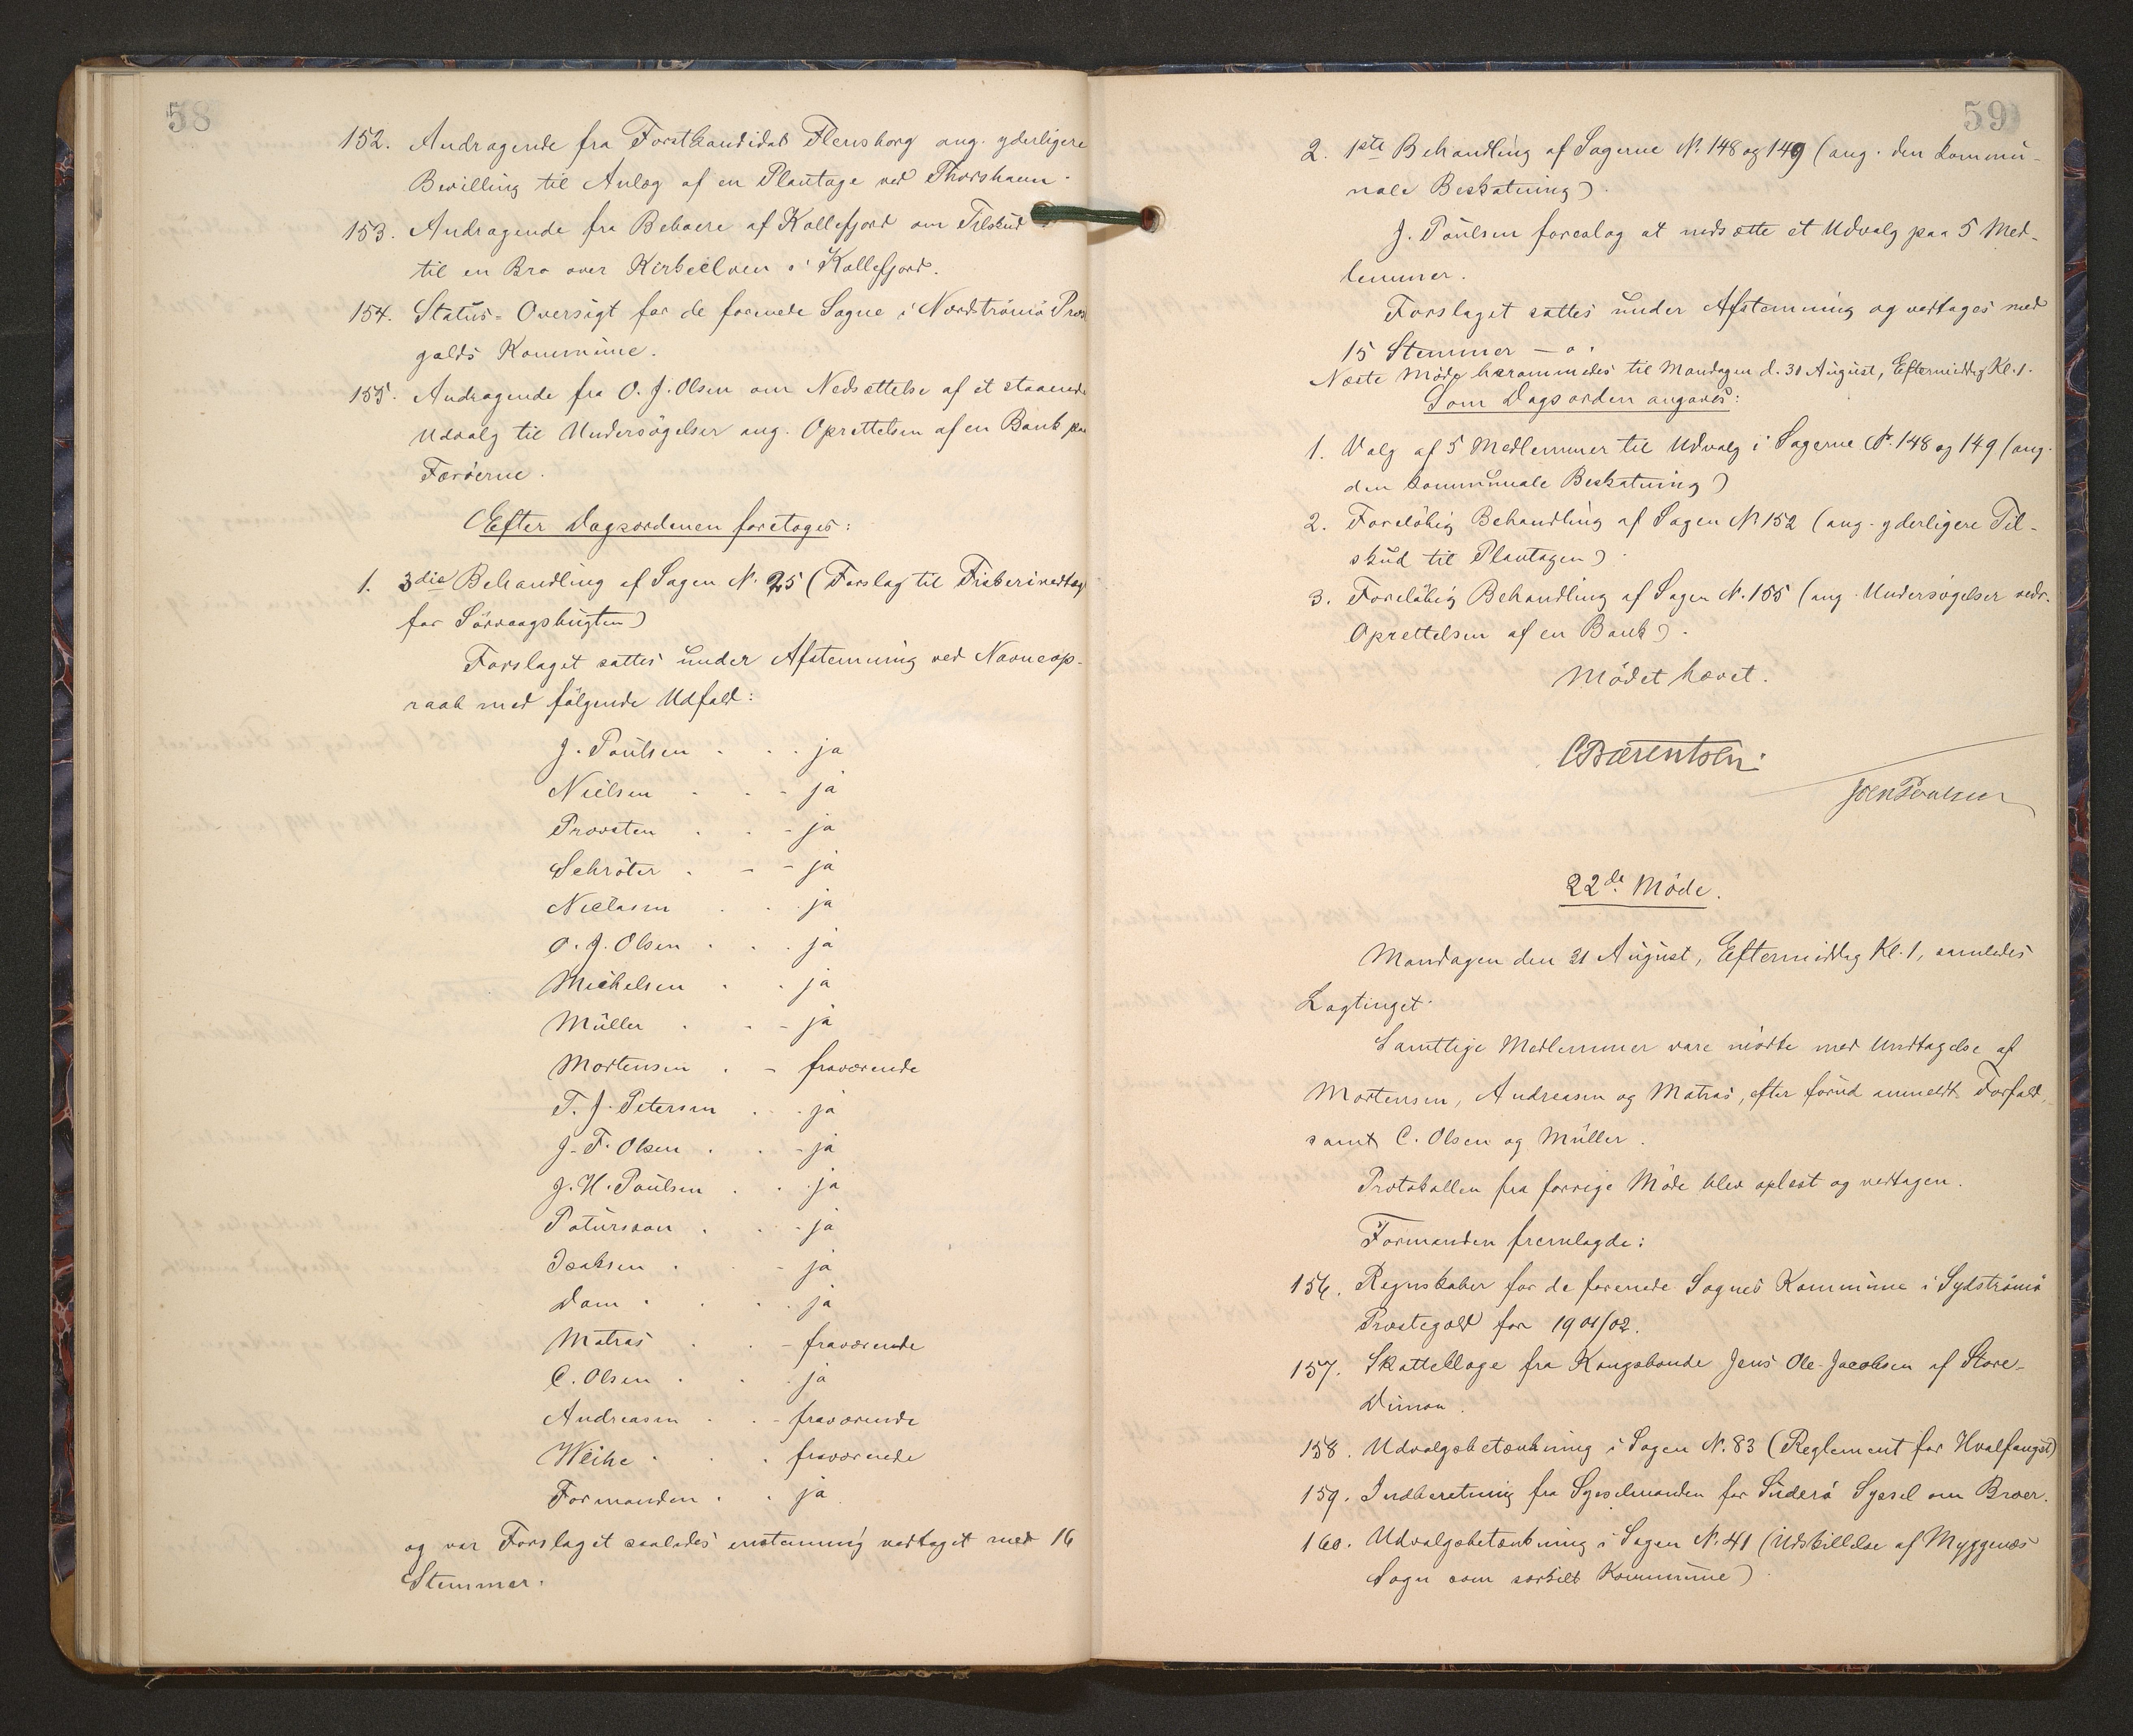 58
152. Andragende fra Forstkandidat Flensborg ang. yderligere
Bevilling til Anlæg af en Plantage ved Thorshavn.
153. Andragende fra Beboere af Kollefjord om Tilskud
til en Bro over Kirkeelven i Kollefjord.
154. Status-Oversigt for de forenede Sogne i Nordströmö Præs
gælds Kommune.
155. Andragende fra O. J. Olsen om Nedsættelse af et staaende
Udvalg til Undersögelser ang. Oprettelsen af en Bank paa
Færöerne.
Efter Dagsordenen foretoges:
1. 3die Behandling af Sagen N. 25 (Forslag til Fiskerivedtægt
for Sörvaagsbugten)
Forslaget sattes under Afstemning ved Navneop-
raab med fölgende Udfald:
J. Poulsen . . . ja
Nielsen . . - ja
Provsten . . - ja
Schröter . - - ja
Niclasen . . ja
O. J. Olsen . . . ja
Michelsen . . ja
Müller . . - ja
Mortensen . - fraværende
T. J. Petersen . . . ja
J. F. Olsen . . - ja
J. H. Poulsen . . . ja
Patursson . . - ja
Isaksen . . - ja
Dam . . . . ja
Matras . . - fraværende
C. Olsen . . . ja
Andreasen . . - fraværende
Weihe . . . fraværende
Formanden . . ja
og var Forslaget saaledes enstemmig vedtaget med 16
Stemmer.
59
2. 1ste Behandling af Sagerne N. 148 og 149 (ang. den kommu-
nale Beskatning).
J. Poulsen foreslog at nedsætte et Udvalg paa 5 Med-
lemmer.
Forslaget sattes under Afstemning og vedtoges med
15 Stemmer - 0.
Næste Möde berammedes til Mandagen d. 31 August, Eftermiddag Kl. 1.
Som Dagsorden angaves:
1. Valg af 5 Medlemmer til Udvalg i Sagerne N. 148 og 149 (ang.
den kommunale Beskatning)
2. Forelöbig Behandling af Sagen N. 152 (ang. yderligere Til-
skud til Plantagen).
3. Forelöbig Behandling af Sagen N. 155 (ang. Undersögelser vedr.
Oprettelsen af en Bank).
Mödet hævet.
CBærentsen.
Joen Poulsen
22de Möde.
Mandagen den 31 August, Eftermiddag Kl. 1, samledes
Lagtinget.
Samtlige Medlemmer vare mödte med Undtagelse af
Mortensen, Andreasen og Matras, efter forud anmeldt Forfald,
samt C. Olsen og Müller.
Protokollen fra forrige Möde blev oplæst og vedtagen.
Formanden fremlagde:
156. Regnskaber for de forenede Sognes Kommune i Sydströmö
Præstegæld for 1901/02.
157. Skatteklage fra Kongsbonde Jens Ole Jacobsen af Store-
Dimon.
158. Udvalgsbetænkning i Sagen N. 83 (Reglement for Hvalfangst)
159. Indberetning fra Sysselmanden for Suderö Syssel om Broer.
160. Udvalgsbetænkning i Sagen N. 41 (Udskillelse af Myggenæs
Sogn som særskilt Kommune)